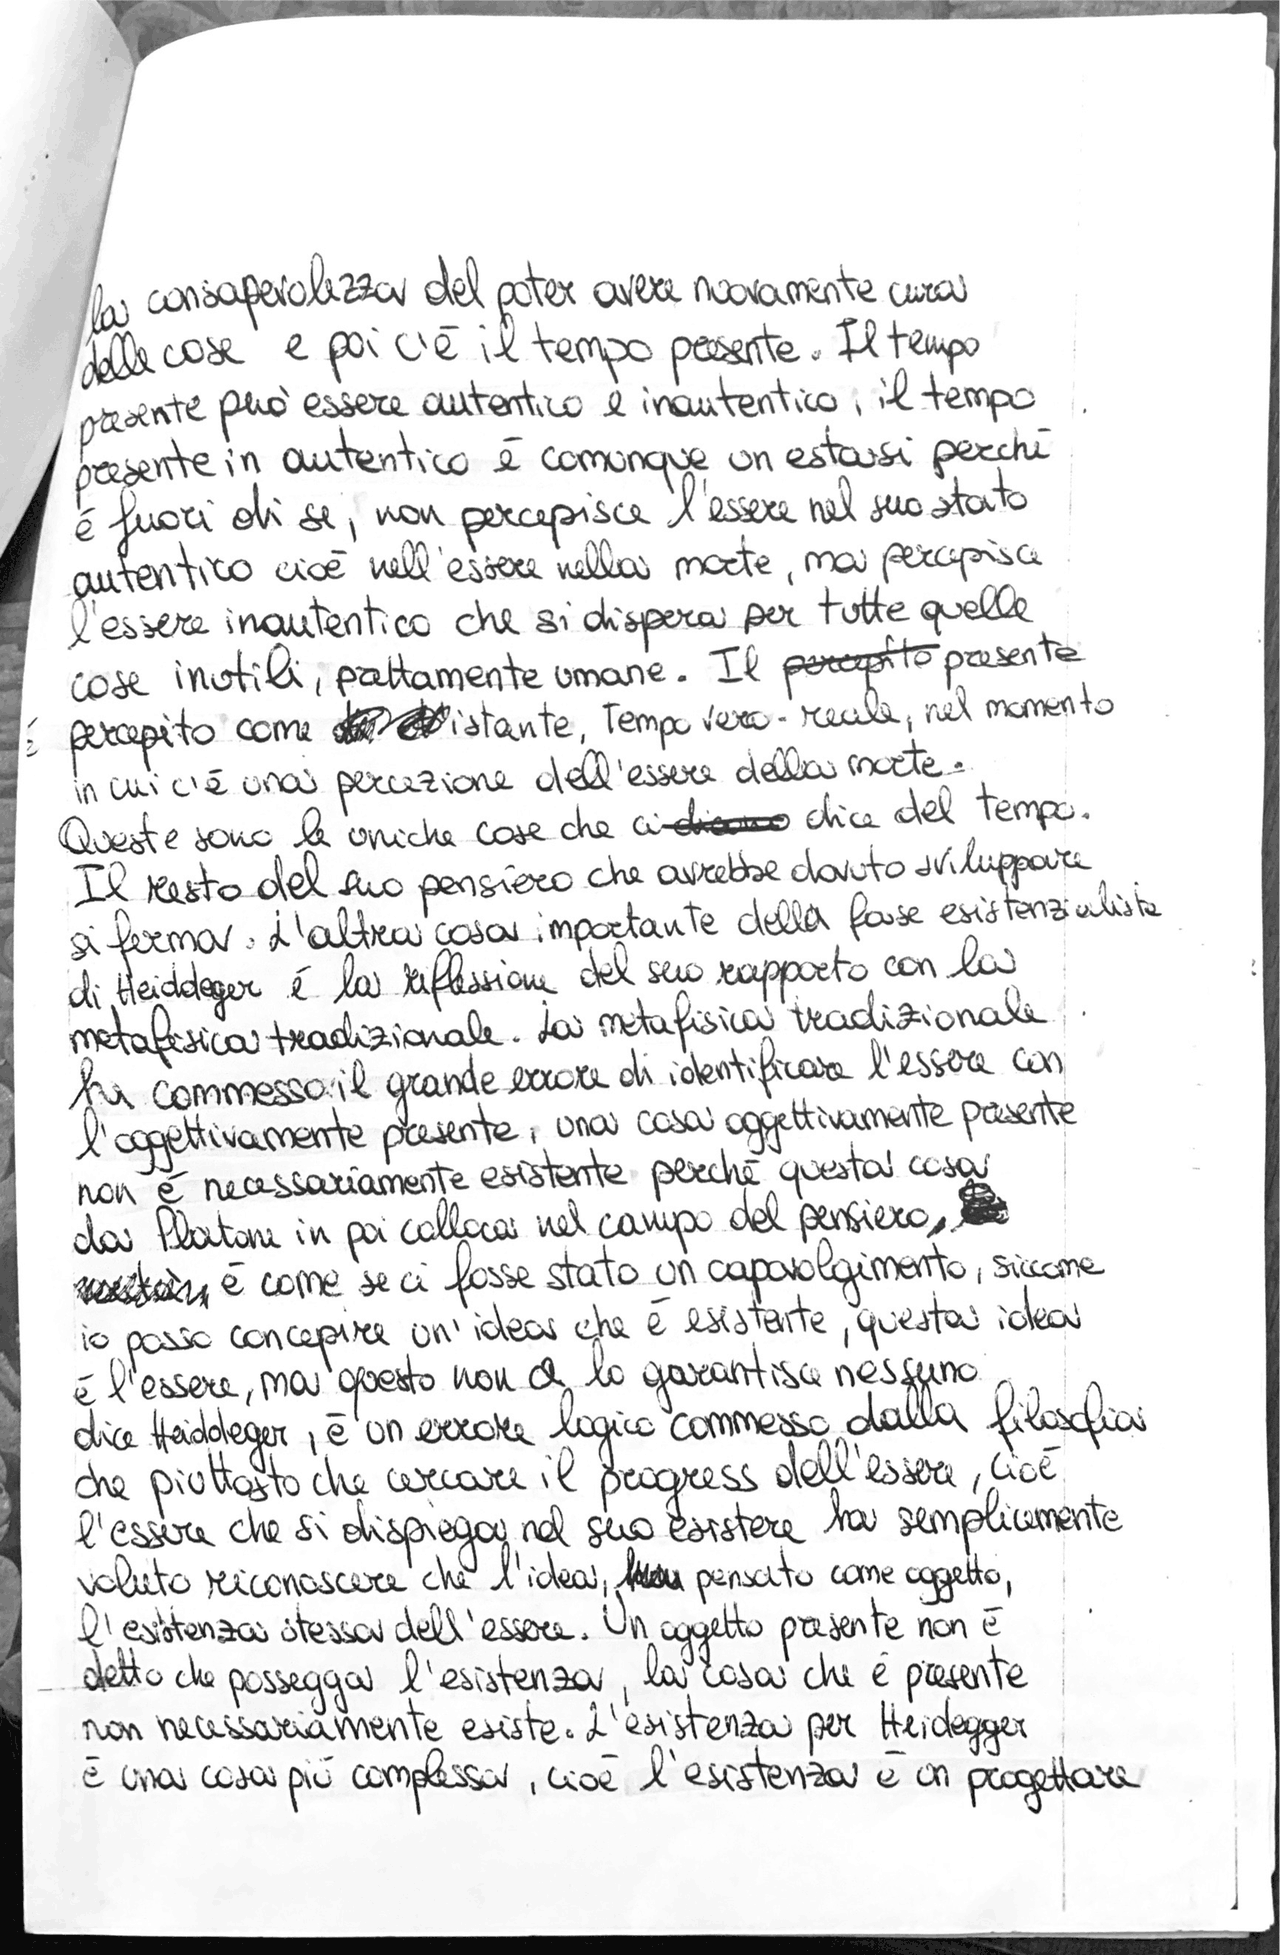 la consapevolezza del poter avere nuovamente cura
delle cose e poi c'è il tempo presente. Il tempo
presente può essere autentico e inautentico, il tempo
presente in autentico è comunque un estasi perché
è fuori di se, non percepisce l'essere nel suo stato
autentico cioè nell'essere nella morte, ma percepisce
l'essere inautentico che si dispera per tutte quelle
cose inutili, prettamente umane. Il percepito presente
è percepito come istante, Tempo vero-reale, nel momento
in cui c'è una percezione dell'essere della morte.
Queste sono le uniche cose che ci dicono dice del tempo.
Il resto del suo pensiero che avrebbe dovuto sviluppare
si ferma. L'altra cosa importante della fase esistenzialista
di Heiddeger è la riflessione del suo rapporto con la
metafisica tradizionale. La metafisica tradizionale
ha commesso il grande errore di identificare l'essere con
l'oggettivamente presente, una cosa oggettivamente presente
non è necessariamente esistente perché questa cosa
da Platone in poi colloca nel campo del pensiero,
è come se ci fosse stato un capovolgimento, siccome
io posso concepire un'idea che è esistente, questa idea
è l'essere, ma questo non ce lo garantisce nessuno
dice Heiddeger, è un errore logico commesso dalla filosofia
che piuttosto che cercare il progress dell'essere, cioè
l'essere che si dispiega nel suo esistere ha semplicemente
voluto riconoscere che l'idea, pensato come oggetto,
l'esistenza stessa dell'essere. Un oggetto presente non è
detto che possegga l'esistenza, la cosa che è presente
non necessariamente esiste. L'esistenza per Heidegger
è una cosa più complessa, cioè l'esistenza è un progettare